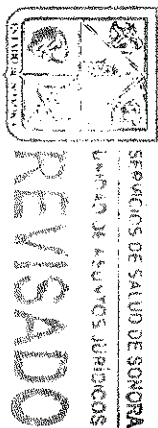 SERVICIOS DE SALUD DE SONORA
UNIDAD DE ASUNTOS JURIDICOS
REVISADO